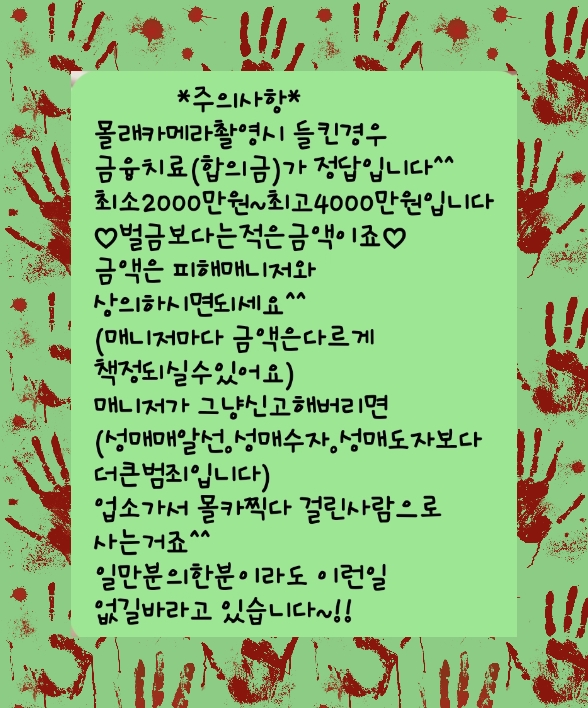 *주의사항*
몰래카메라촬영시 들킨경우
금융치료(합의금)가 정답입니다^^
최소2000만원~최고4000만원입니다
♡벌금보다는적은금액이죠♡
금액은 피해매니저와
상의하시면되세요^^
(매니저마다 금액은다르게
책정되실수있어요)
매니저가 그냥신고해버리면
(성매매알선,성매수자,성매도자보다
더큰범죄입니다)
업소가서 몰카찍다 걸린사람으로
사는거죠^^
일만분의한분이라도 이런일
없길바라고 있습니다~!!